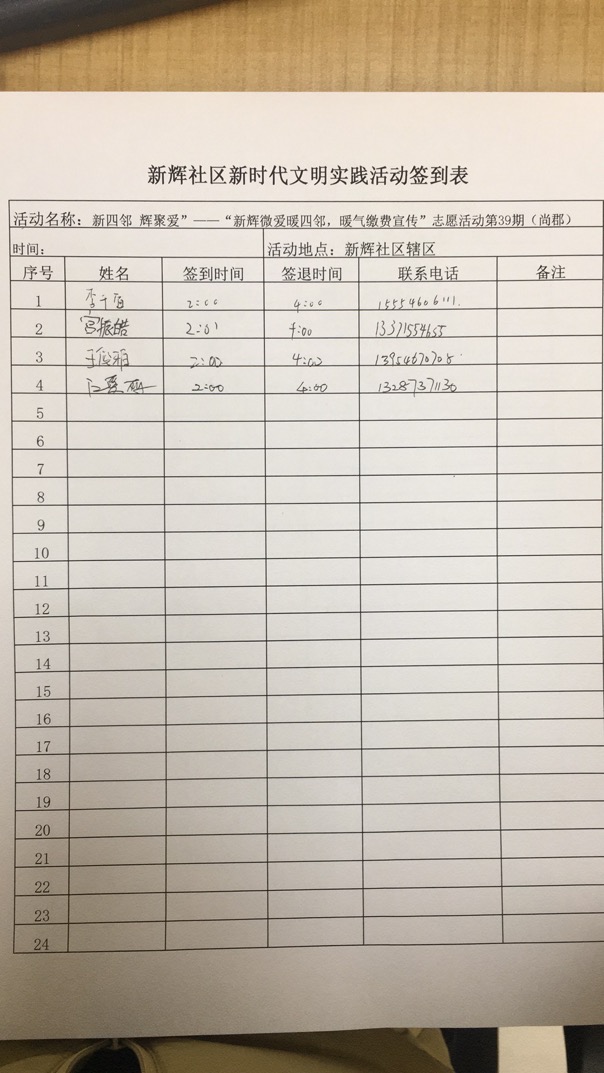 新辉社区新时代文明实践活动签到表
活动名称：新四邻 辉聚爱”——“新辉微爱暖四邻，暖气缴费宣传”志愿活动第39期（尚郡）
时间： 活动地点：新辉社区辖区
序号 姓名 签到时间 签退时间 联系电话 备注
1 2:00 4:00 15554606111
2 宫振皓 2:01 4:00 13371554655
3 2:00 4:00 13954670708
4 2:00 4:00 13287371130
5
6
7
8
9
10
11
12
13
14
15
16
17
18
19
20
21
22
23
24